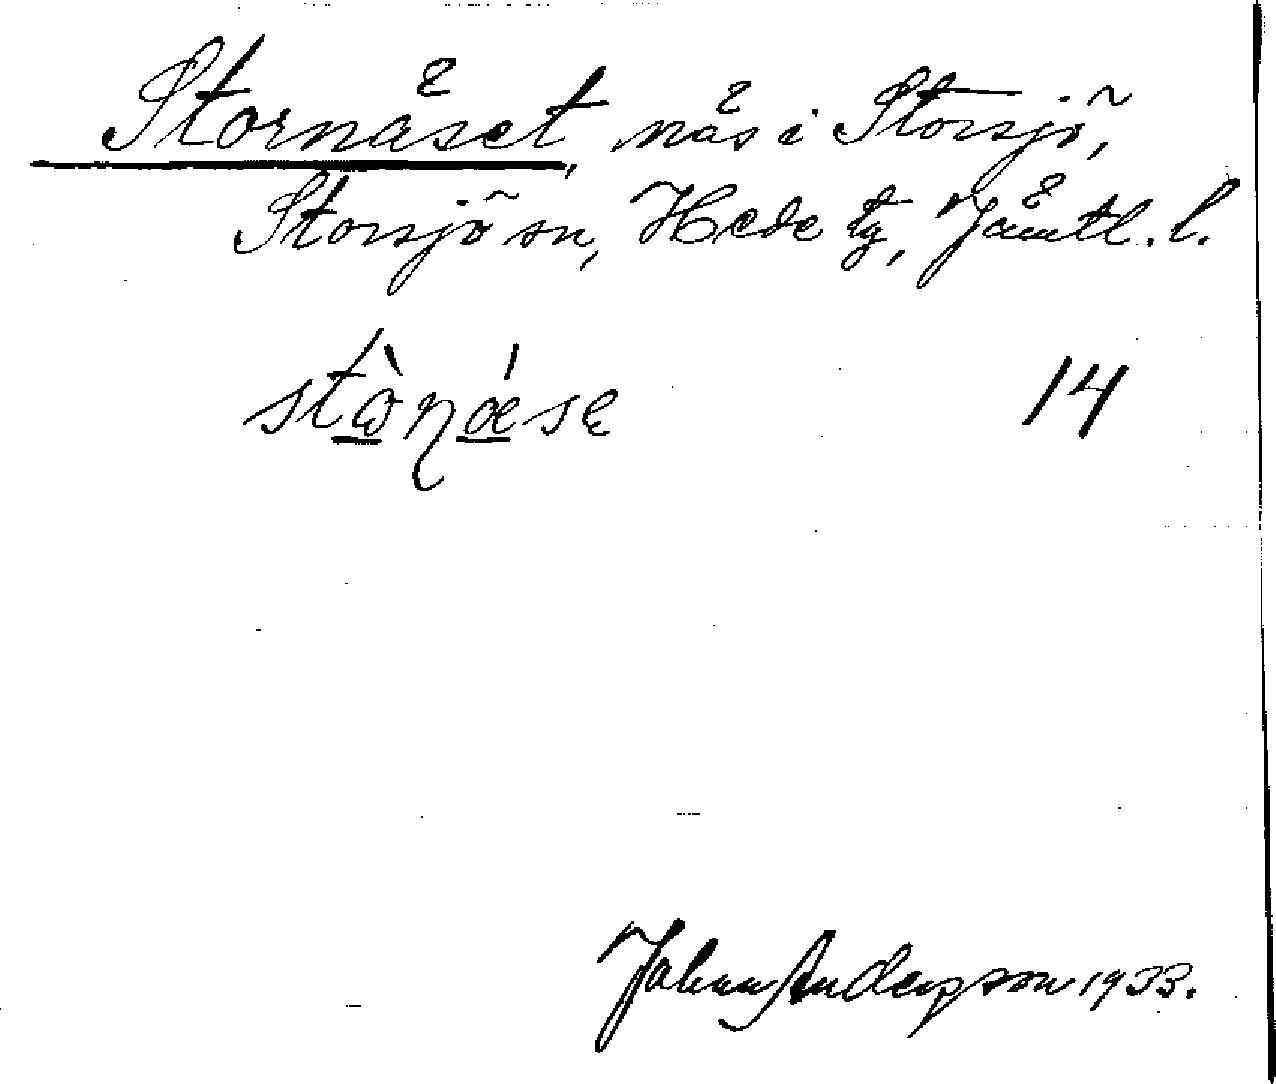 Stornäset, näs i Storsjö,
Storsjö sn, Hede tg, Jämtl. l.
stɷ̀ŋǽsę 14
Johan Anderson 1933.